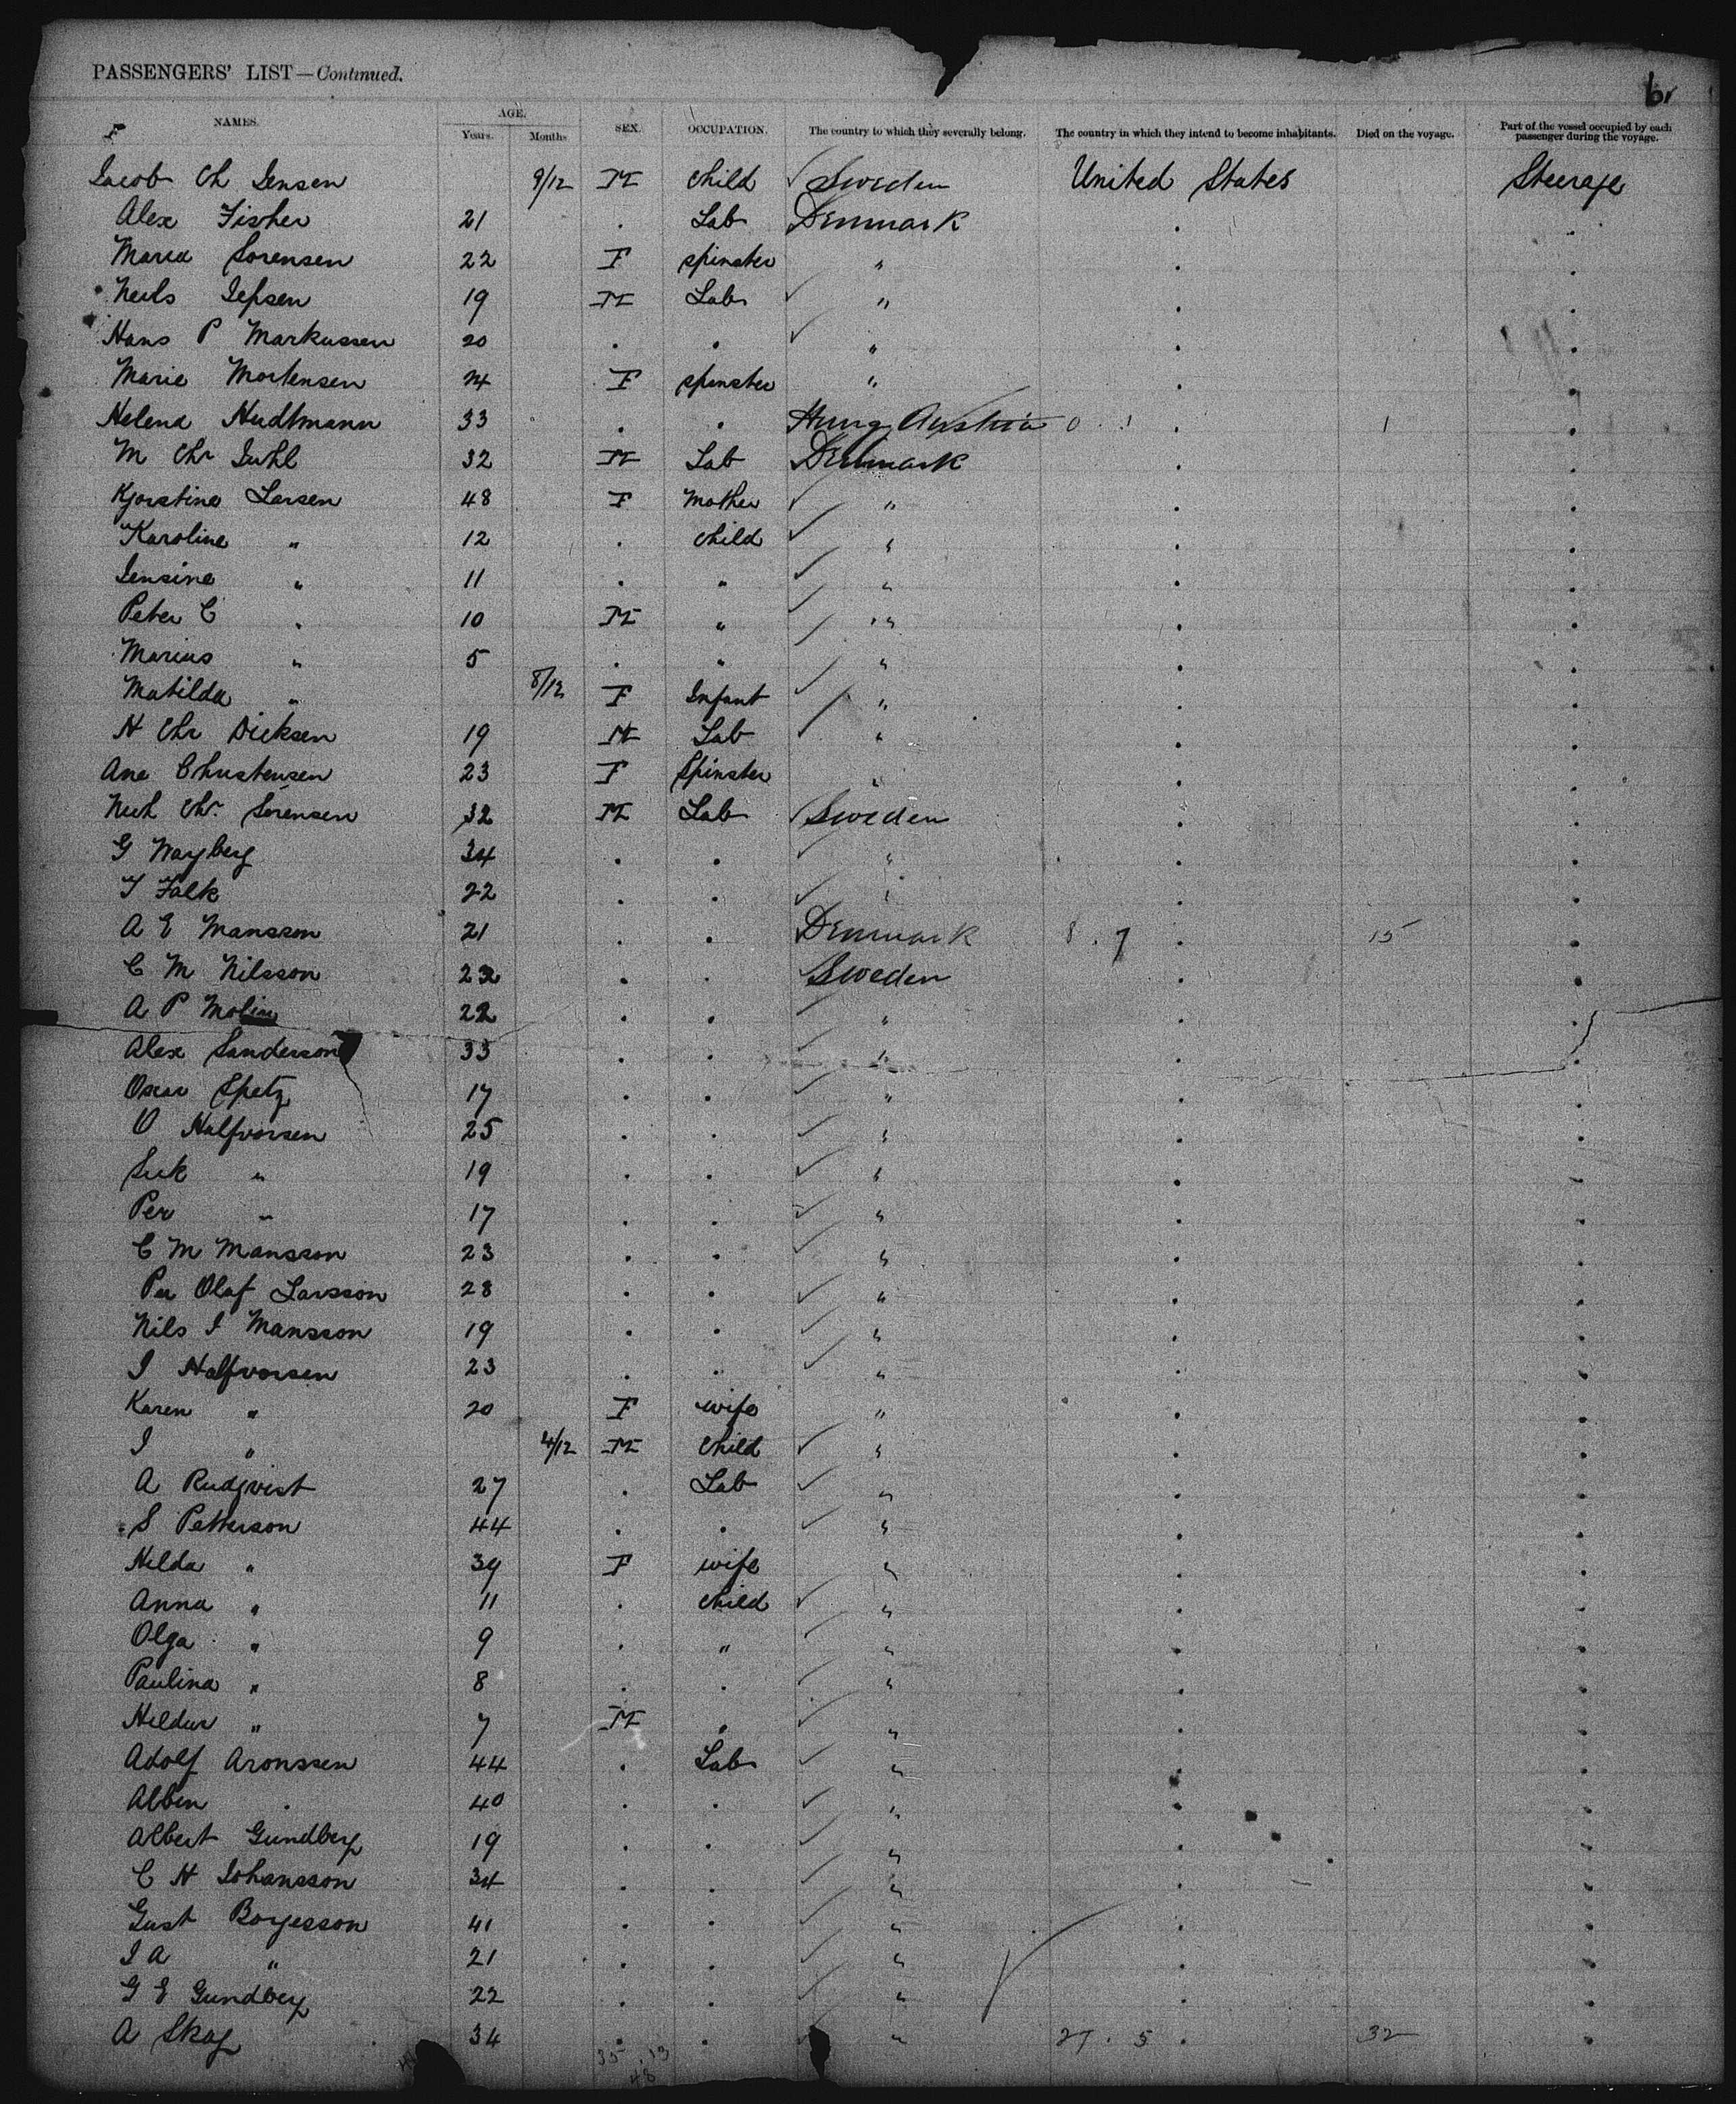 PASSENGERS' LIST—Continued.
6
NAMES. AGE. Years. Months SEX. OCCUPATION. The country to which they severally belong. The country in which they intend to become inhabitants. Died on the voyage. Part of the vessel occupied by each passenger during the voyage.
Jacob Ch Jensen 9/12 M child Sweden United States Steerage
Alex Fisher 21 . Lab Denmark . .
Maria Sorensen 22 F spinster " . .
Neils Jepsen 19 M Lab " . .
Hans P Markussen 20 . . " . .
Marie Mortensen 24 F spinster " . .
Helena Hudtmann 33 . . Hung Austria 0 . 1 . 1 .
M Chr Juhl 32 M Lab Denmark . .
Kjorstine Larsen 48 F Mother " . .
Karoline " 12 . child " . .
Jensine " 11 . " " . .
Peter C " 10 M " " . .
Marius " 5 . " " . .
Matilda " 8/12 F Infant " . .
N Chr Dicksen 19 M Lab " . .
Ane Christensen 23 F Spinster " . .
Chr. Sorensen 32 M Lab Sweden . .
G Wayberg 34 . . " . .
F Falk 22 . . " . .
A E Mansson 21 . . Denmark 8 . 7 . 15 .
C M Nilsson 22 . . Sweden . .
A P Molin 22 . . " . .
Alex Sanderson 33 . . " . .
Oscar Spetz 17 . . " . .
O Halfvorsen 25 . . " . .
" 19 . . " . .
Per " 17 . . " . .
C M Mansson 23 . . " . .
Per Olaf Larsson 28 . . " . .
Nils J Mansson 19 . . " . .
J Halfvorsen 23 . . " . .
Karen " 20 F wife " . .
J " 4/12 M child " . .
A Rudqvist 27 . Lab " . .
S Petterson 44 . . " . .
Hilda " 39 F wife " . .
Anna " 11 . child " . .
Olga " 9 . " " . .
Paulina " 8 . . " . .
Hildur " 7 M " " . .
Adolf Aronssen 44 . Lab " . .
Alben . 40 . . " . .
Albert Gundberg 19 . . " . .
C H Johansson 34 . . " . .
Gust Borjesson 41 . . " . .
J A " 21 . . " . .
G E Gundberg 22 . . " . .
A Skog 34 . . " 27 . 5 . 32 .
35 . 13
48